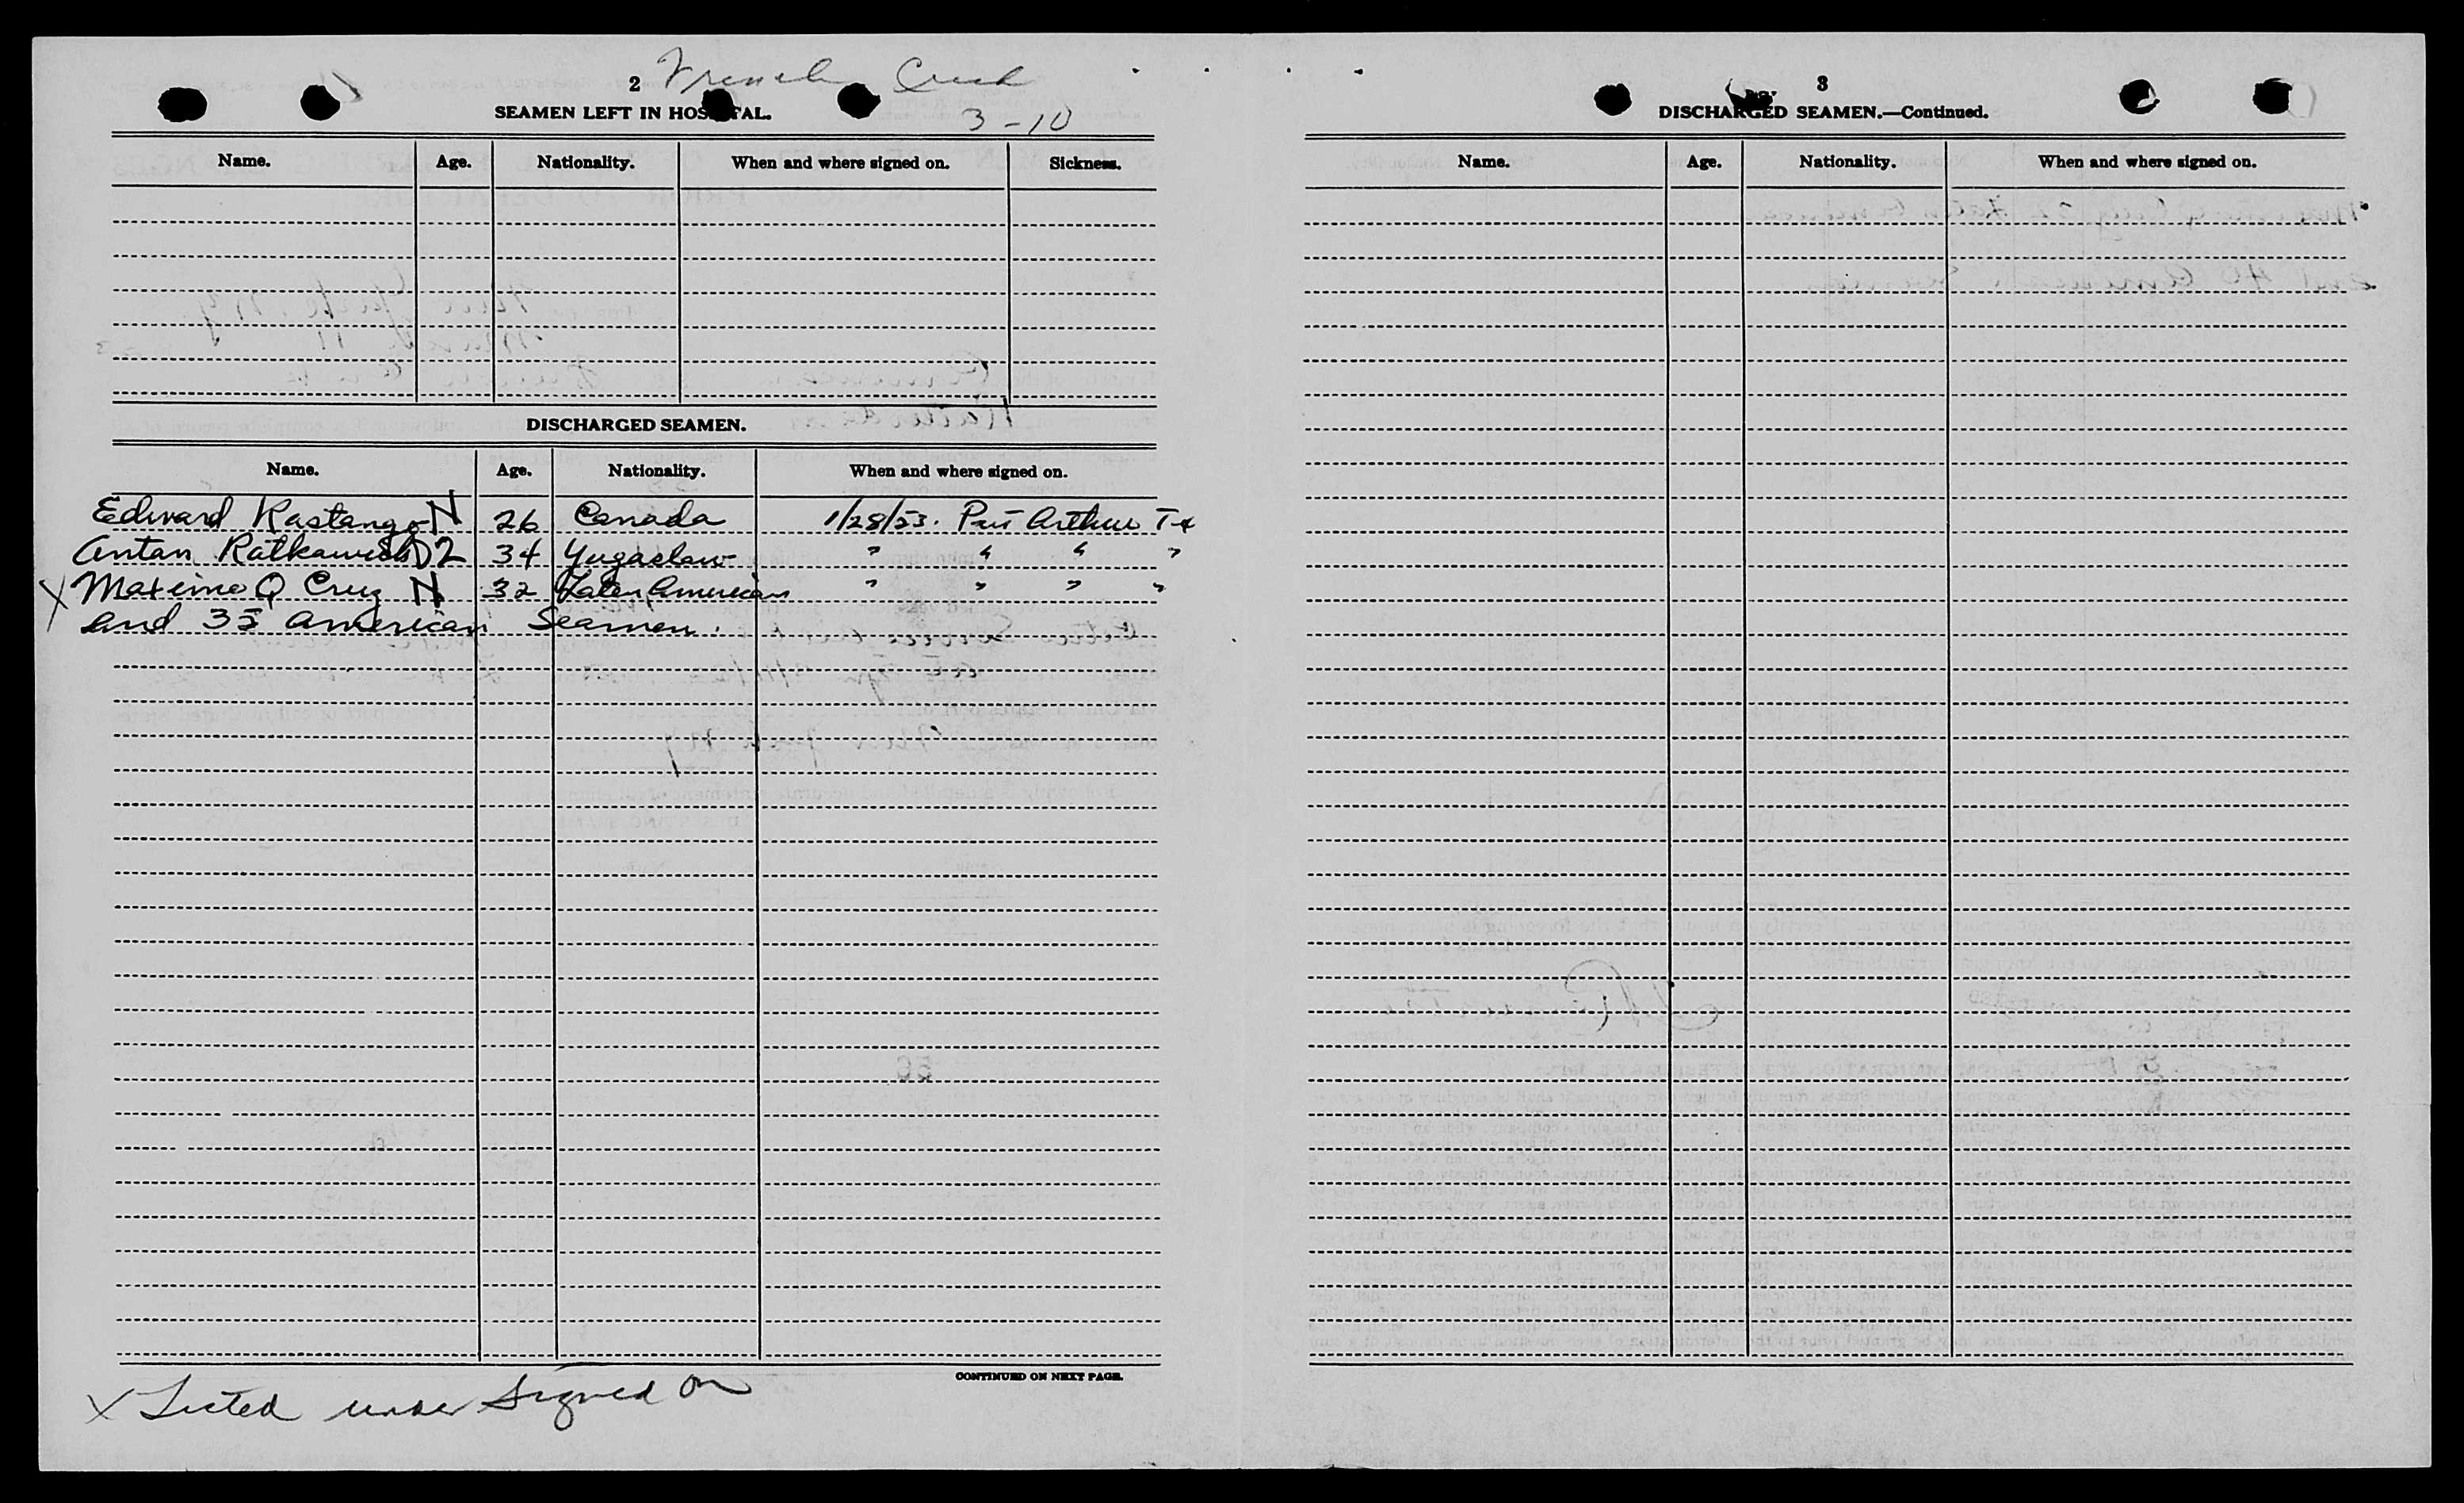 2 French Creek
SEAMEN LEFT IN HOSPITAL.
3-10
Name. Age. Nationality. When and where signed on. Sickness.
DISCHARGED SEAMEN.
Name. Age. Nationality. When and where signed on.
Edward Kastango N 26 Canada 1/28/53. Port Arthur Tx
Antan D2 34 Yugaslav " " " "
X Maximo Q Cruz N 32 Laten American " " " "
and 35 American Seamen.
CONTINUED ON NEXT PAGE.
X Listed under Signed on
3
DISCHARGED SEAMEN.—Continued.
Name. Age. Nationality. When and where signed on.